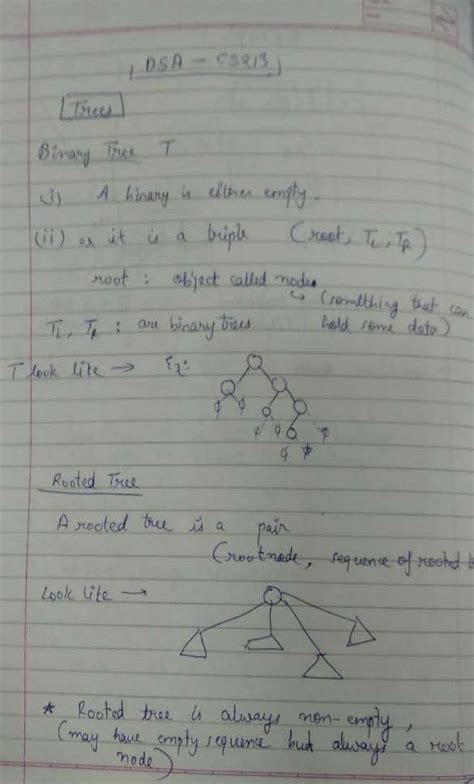 DSA - CS213
Trees
Binary Tree T
(i) A binary is either empty.
(ii) or it is a triple (root, T_L, T_R)
root : object called nodes
↳ (something that can
T_L, T_R : are binary trees hold some data)
T look like → Ex:
φ φ
φ φ φ
φ φ
Rooted Tree
A rooted tree is a pair
(rootnode, sequence of rooted
Look like →
* Rooted tree is always non-empty,
(may have empty sequence but always a root
node)